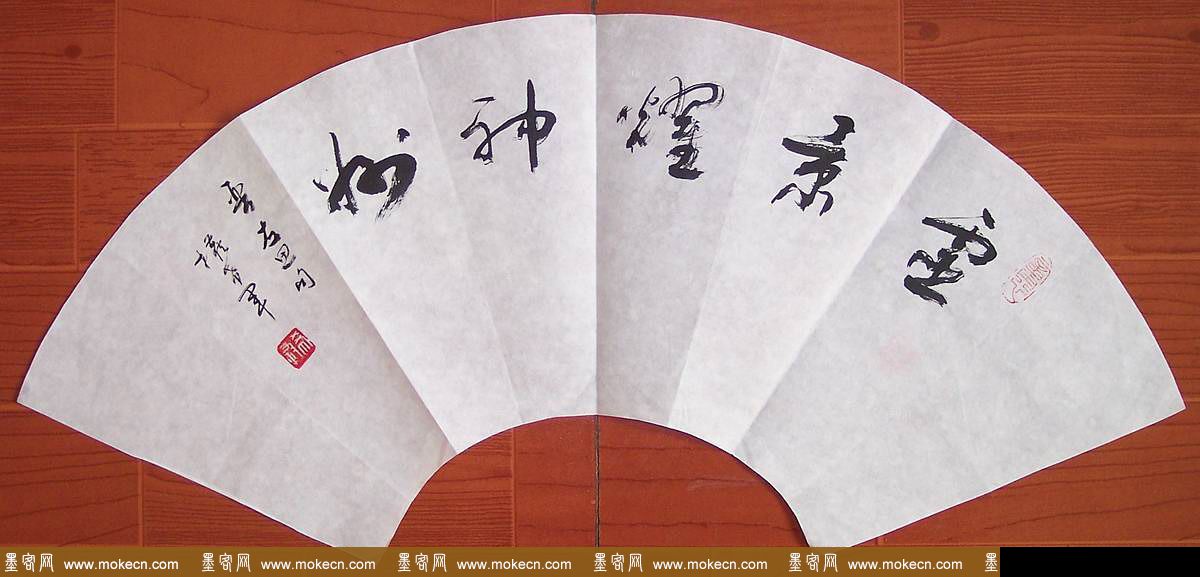 灵景耀神州
左思句
军
墨客网 www.mokecn.com 墨客网 www.mokecn.com 墨客网 www.mokecn.com 墨客网 www.mokecn.com 墨客网 www.mokecn.com